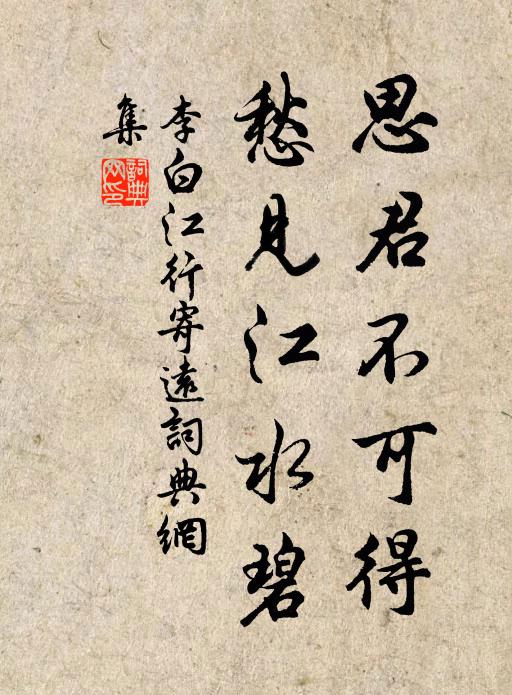 思君不可得
愁見江水碧
李白江行寄遠詞典網
集
詞典
网印